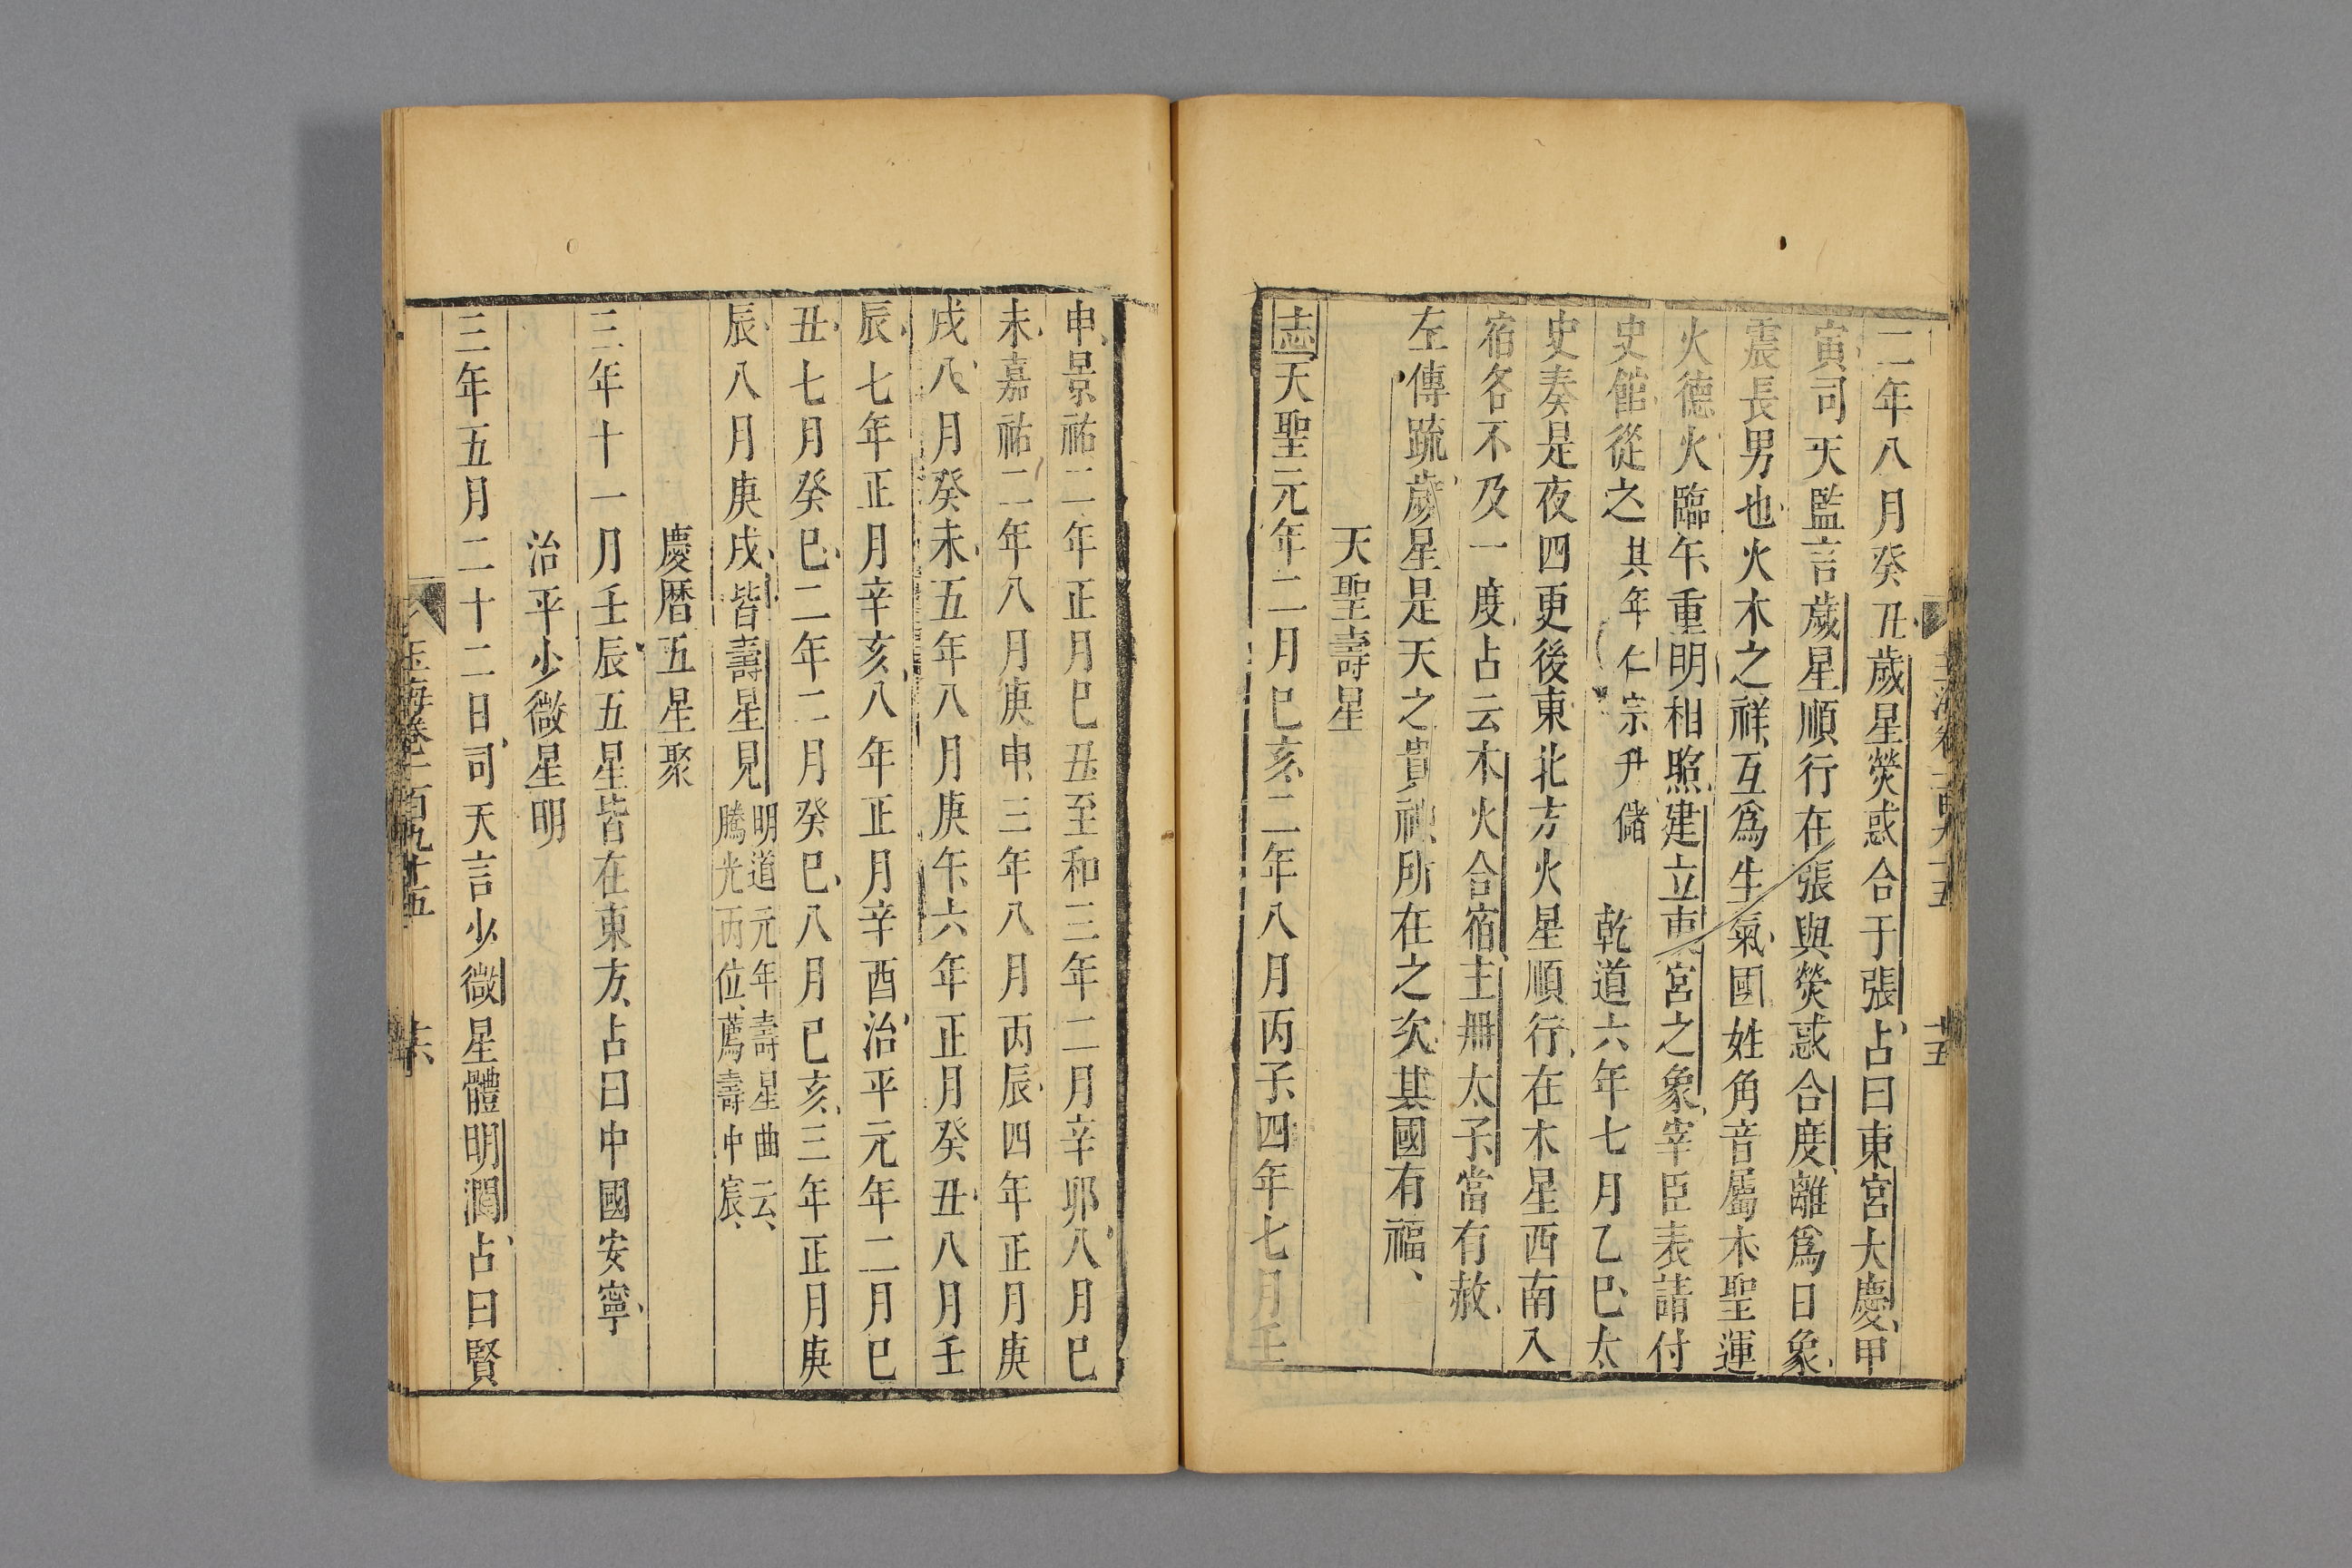 二年八月癸丑歲星熒惑合于張占曰東宮大慶甲
寅司天監言歲星順行在張與熒惑合度離爲日象
震長男也火木之祥互爲生氣國姓角音屬木聖運
火德火臨午重明相照建立東宮之象宰臣表請付
史館從之其年仁宗升儲 乾道六年七月乙巳太
史奏是夜四更後東北方火星順行在木星西南入
宿各不及一度占云木火合宿主冊太子當有赦
左傳疏歲星是天之貴神所在之次其國有福
天聖壽星
志天聖元年二月巳亥二年八月丙子四年七月壬
申景祐二年正月巳丑至和三年二月辛卯八月巳
未嘉祐二年八月庚申三年八月丙辰四年正月庚
戌八月癸未五年八月庚午六年正月癸丑八月壬
辰七年正月辛亥八年正月辛酉治平元年二月巳
丑七月癸巳二年二月癸巳八月己亥三年正月庚
辰八月庚戌皆壽星見明道元年壽星曲云
騰光丙位薦壽中宸
慶曆五星聚
三年十一月壬辰五星皆在東方占曰中國安寧
治平少微星明
三年五月二十二日司天言少微星體明潤占曰賢
玉海卷一百九十五 十六